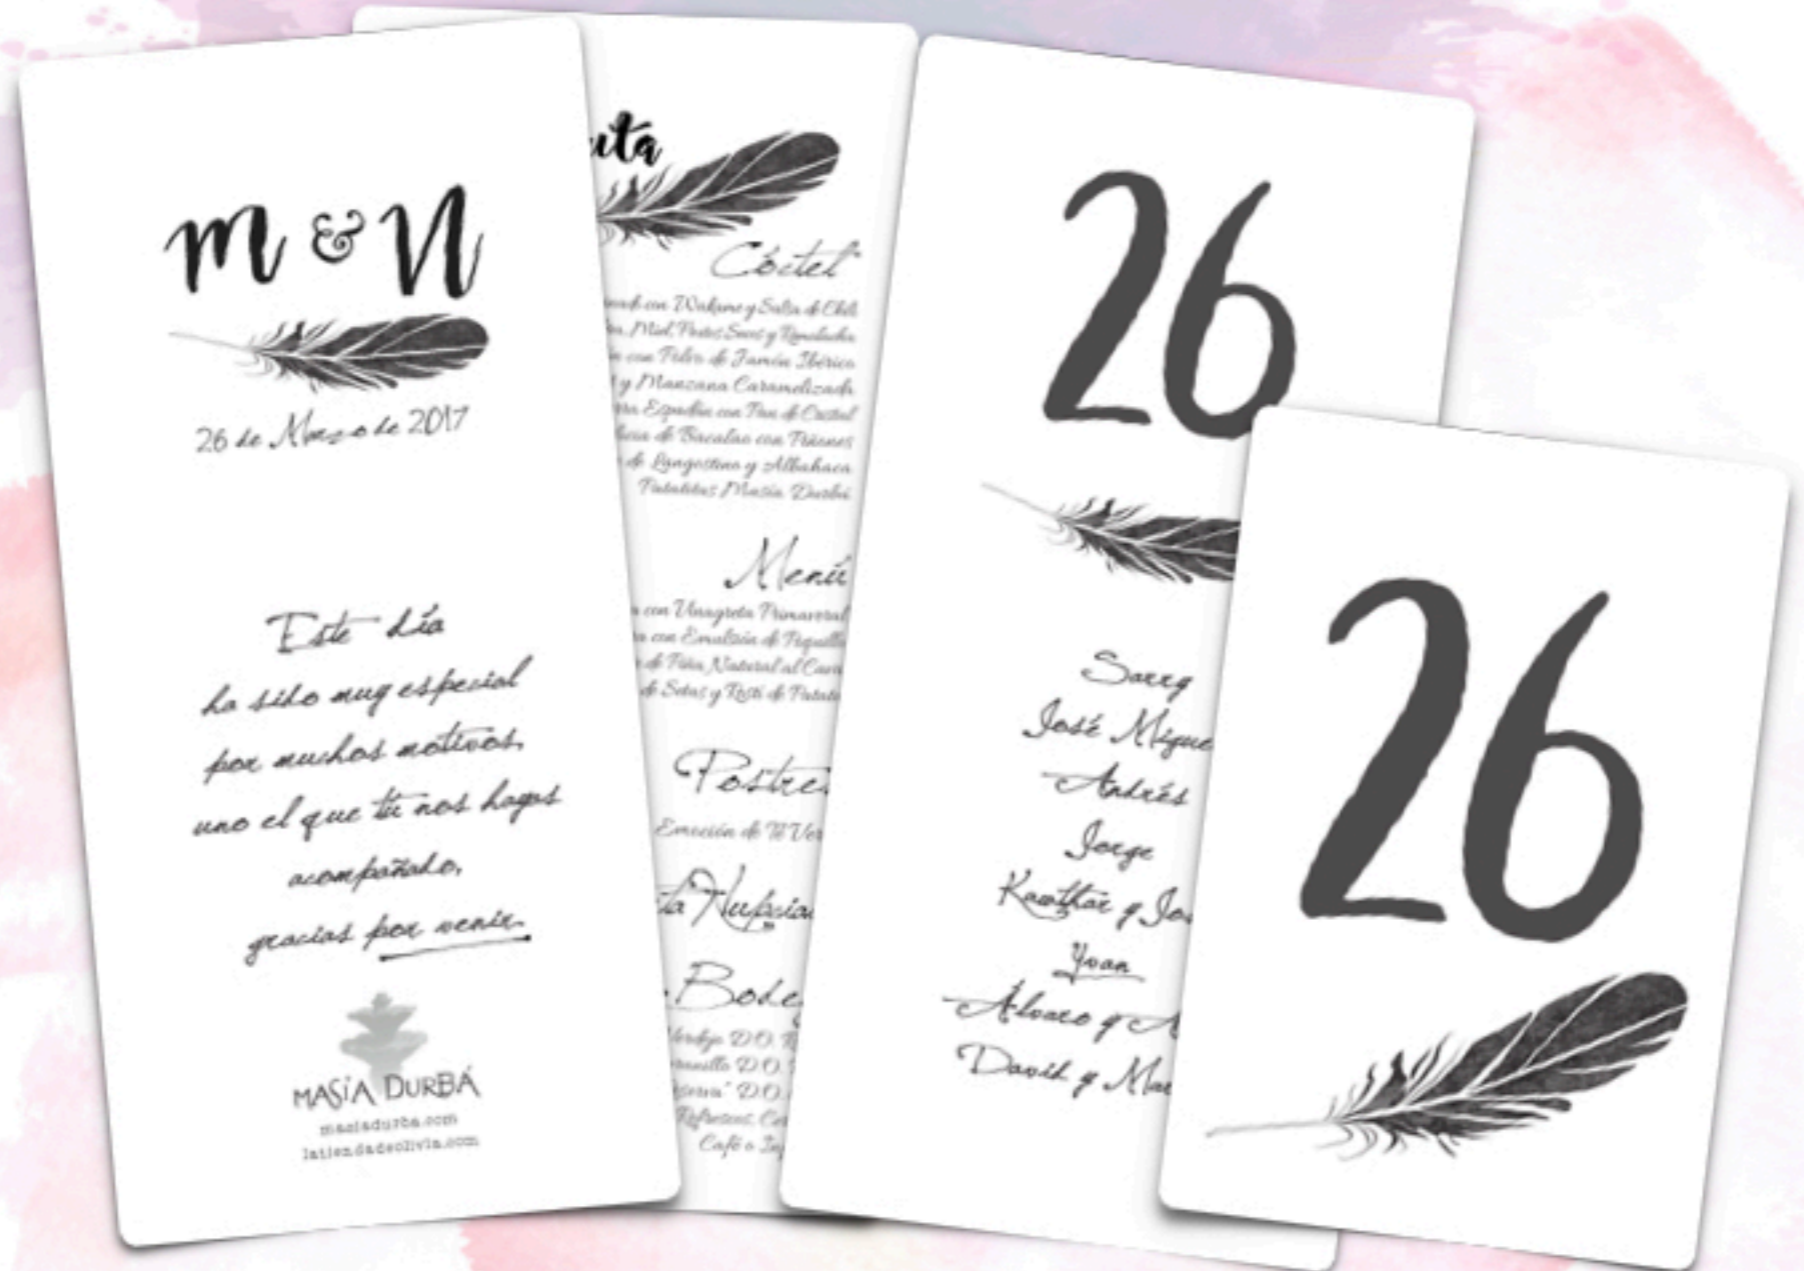 M & N
26 de Marzo de 2017
Este día
ha sido muy especial
por muchos motivos,
uno el que tú nos hayas
acompañado,
gracias por venir.
MASÍA DURBÁ
masiadurba.com
latiendadeolivia.com
uta
Cóctel
con Wakame y Salsa de Chili
Miel, Frutos Secos y Remolacha
con Polvo de Jamón Ibérico
y Manzana Caramelizada
Espadín con Pan de Cristal
de Bacalao con Piñones
de Langostino y Albahaca
Patatitas Masía Durbá
Menú
con Vinagreta Primaveral
con Emulsión de Piquillo
de Piña Natural al Cava
de Setas y Rosti de Patata
Postre
Emoción de Té Ver
Nupcial
Bode
Verdejo D.O.
D.O.
D.O.
Refrescos, Cer
Café o In
26
Sarry
José Migue
Andrés
Jorge
Kawthar y Jos
Yvan
Álvaro y A
David y Mar
26